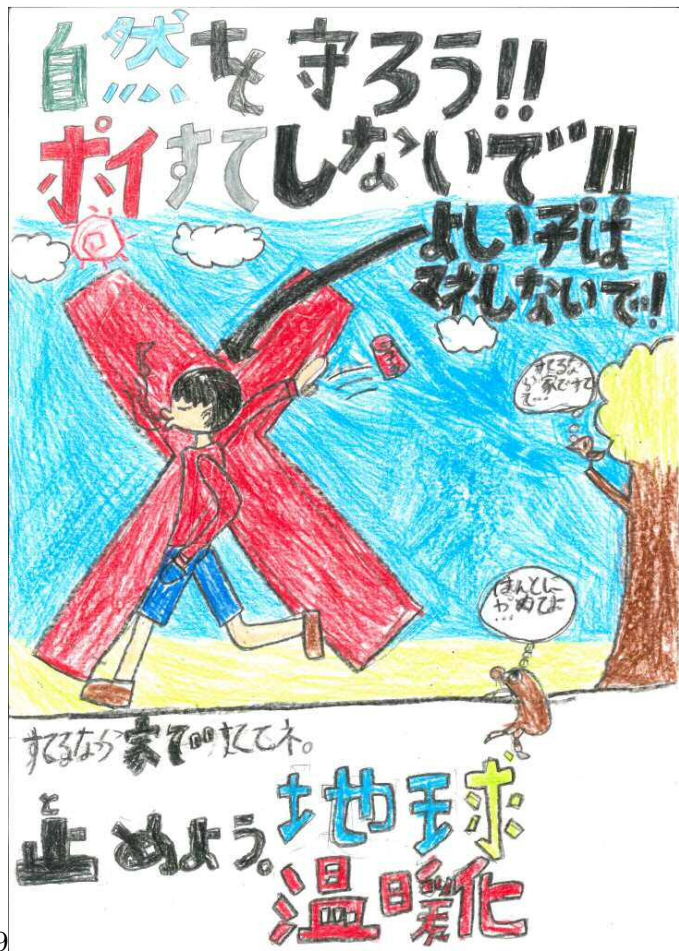 自然を守ろう!!
ポイすてしないで!!
よい子は
マネしないで!
すてるな
ら家ですて
て…
ほんとに
やめてよ
…
すてるなら家ですててネ。
と
止めよう。地球
温暖化
9